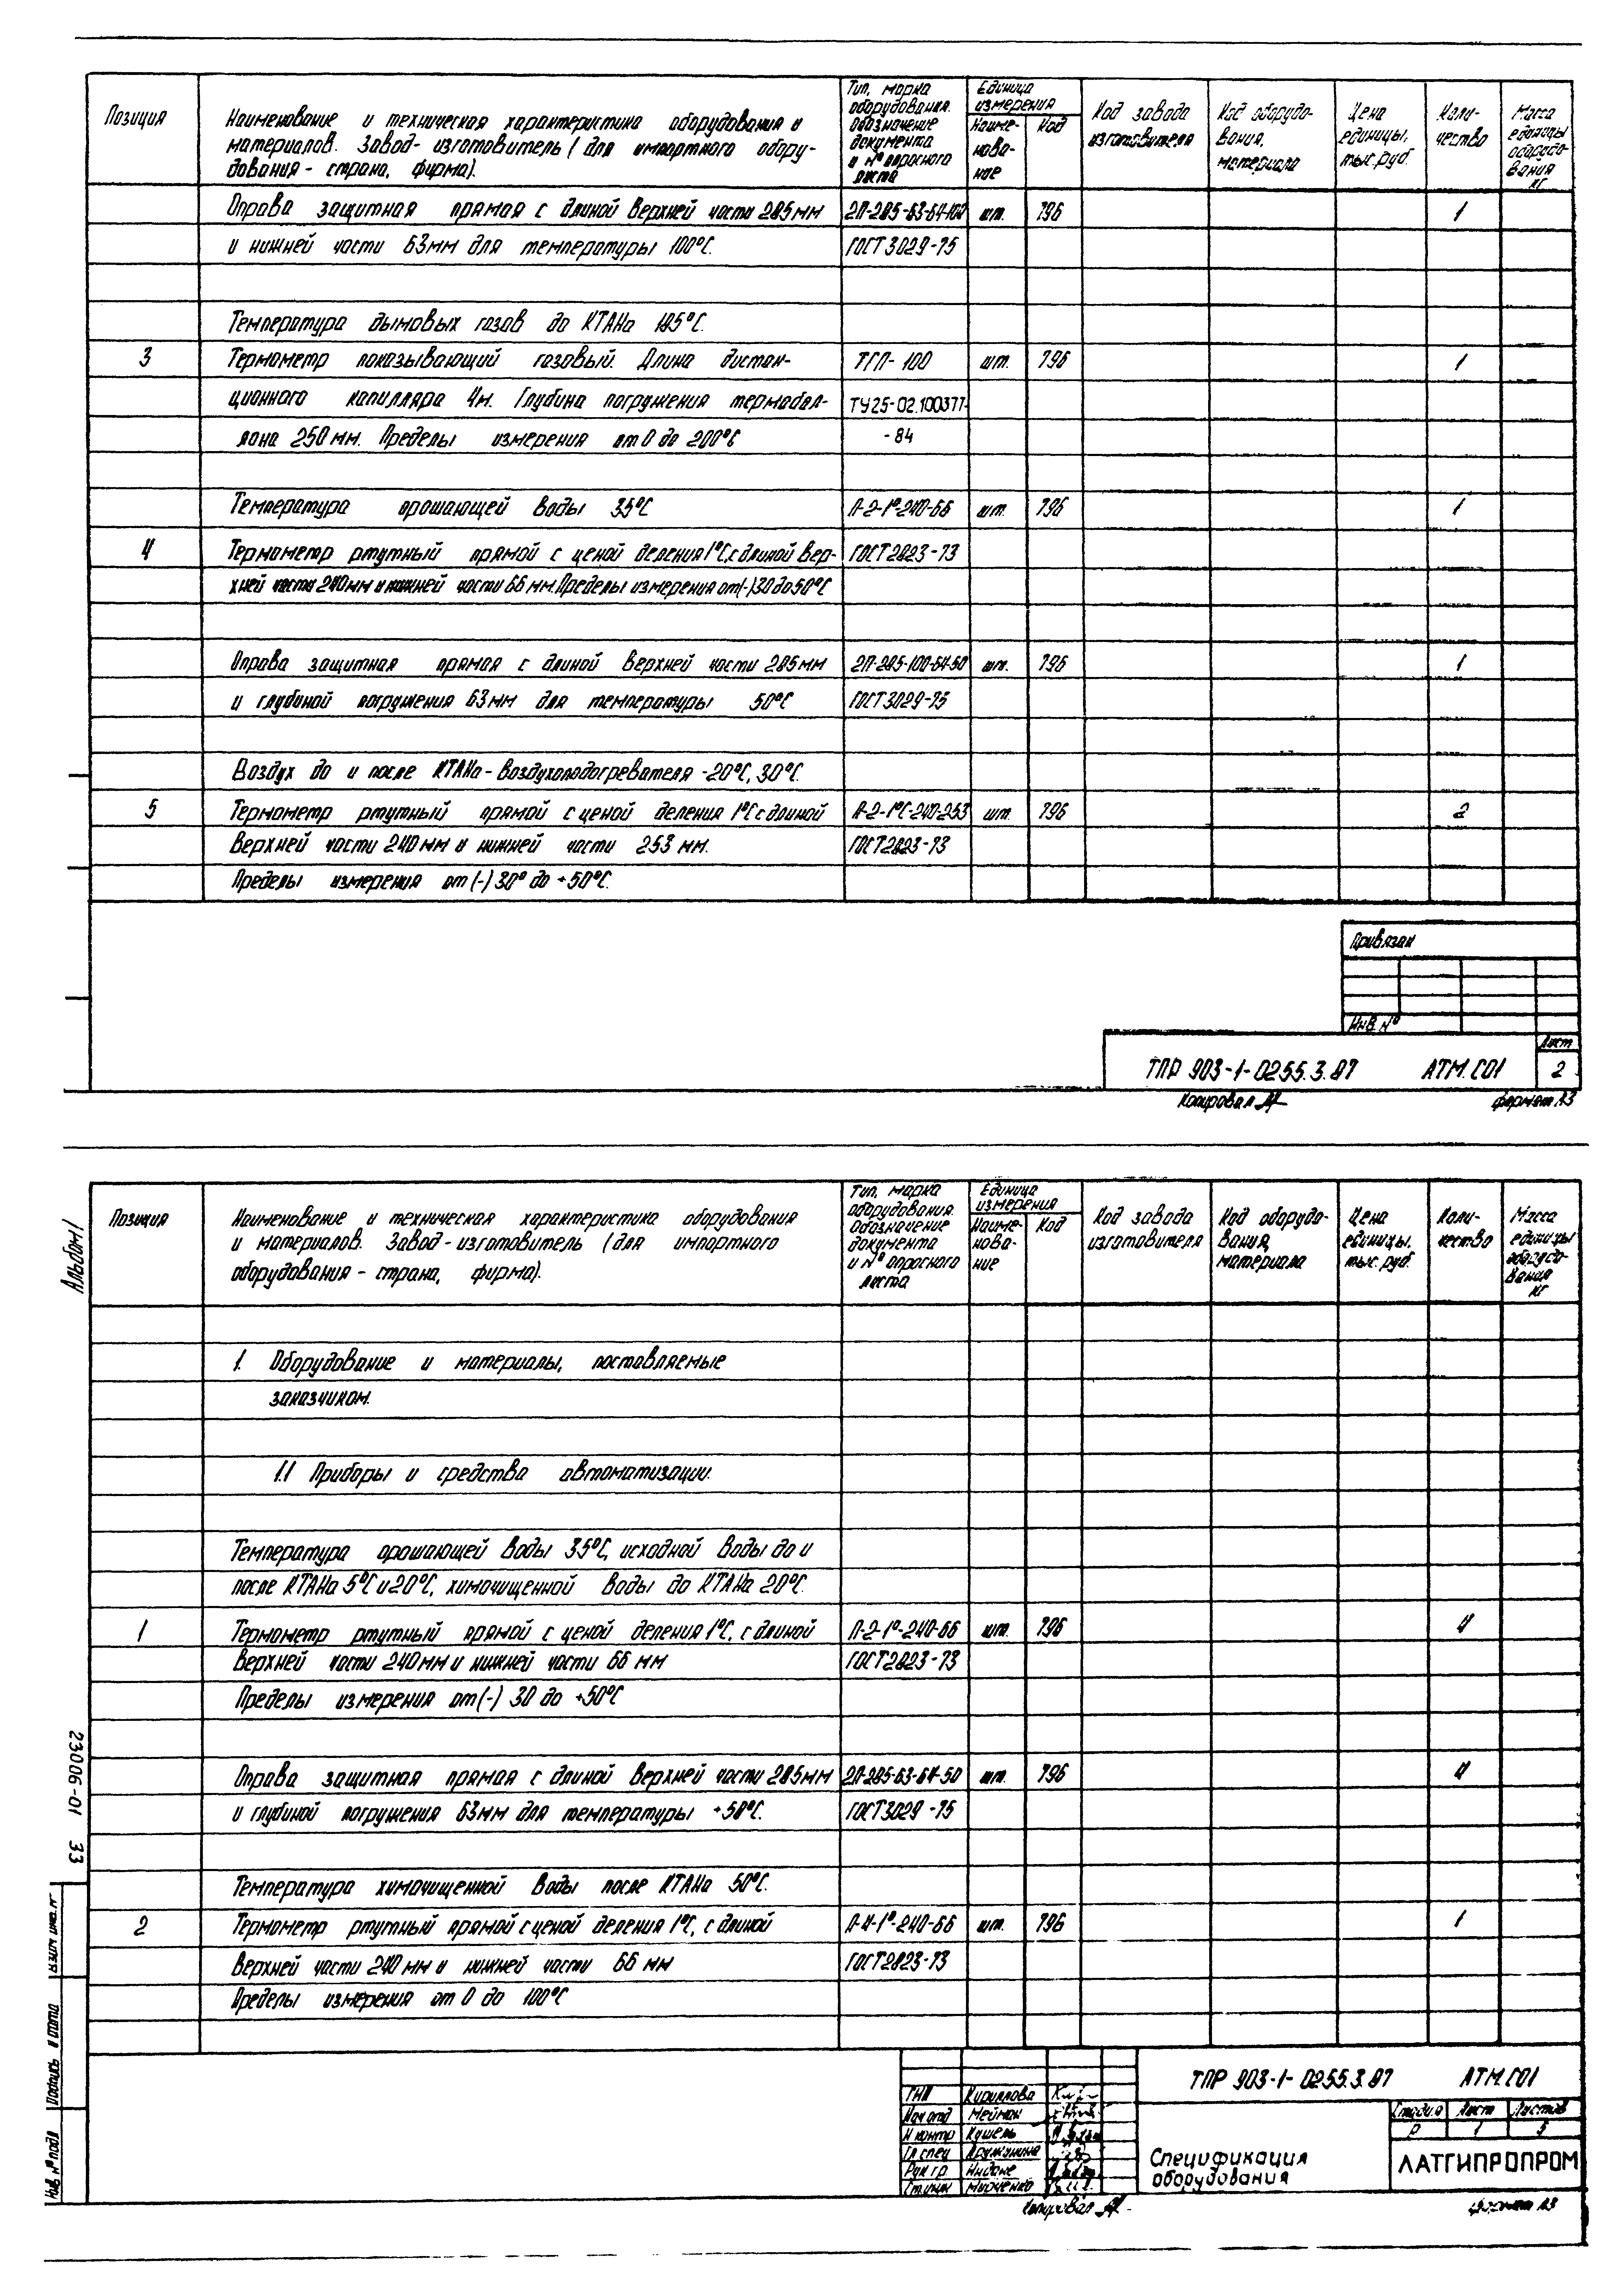 Позиция
Наименование и техническая характеристика оборудования и
материалов. Завод-изготовитель (для импортного обору-
дования - страна, фирма).
Тип, марка
оборудования.
Обозначение
документа
и № опросного
листа
Единица
измерения
Наиме-
нова-
ние
Код
Код завода
изготовителя
Код оборудо-
вания,
материала
Цена
единицы,
тыс.руб.
Коли-
чество
Масса
единицы
оборудо-
вания
кг
Оправа защитная прямая с длиной верхней части 285мм 2П-285-63-64-100 шт. 796 1
и нижней части 63мм для температуры 100°С. ГОСТ 3029-75
Температура дымовых газов до КТАНа 185°С.
3 Термометр показывающий газовый. Длина дистан- ТГП-100 шт. 796 1
ционного капилляра 4м. Глубина погружения термобал- ТУ25-02.100377-
лона 250мм. Пределы измерения от 0 до 200°С -84
Температура орошающей воды 35°С П-2-1°-240-66 шт. 796 1
4 Термометр ртутный прямой с ценой деления 1°С, с длиной вер- ГОСТ 2823-73
хней части 240мм и нижней части 66 мм. Пределы измерения от(-)30 до 50°С
Оправа защитная прямая с длиной верхней части 285мм 2П-285-100-64-50 шт. 796 1
и глубиной погружения 63мм для температуры 50°С ГОСТ 3029-75
Воздух до и после КТАНа-воздухоподогревателя -20°С, 30°С.
5 Термометр ртутный прямой с ценой деления 1°С с длиной П-2-1°С-240-253 шт. 796 2
верхней части 240мм и нижней части 253 мм. ГОСТ 2823-73
Пределы измерения от (-) 30° до +50°С.
Привязан
Инв. №
Лист
ТПР 903-1-0255.3.87 АТМ.СО1 2
Копировал
формат А3
Альбом 1
Позиция
Наименование и техническая характеристика оборудования
и материалов. Завод-изготовитель (для импортного
оборудования - страна, фирма).
Тип, марка
оборудования.
Обозначение
документа
и № опросного
листа
Единица
измерения
Наиме-
нова-
ние
Код
Код завода
изготовителя
Код оборудо-
вания,
материала
Цена
единицы,
тыс. руб.
Коли-
чество
Масса
единицы
оборудо-
вания
кг
1. Оборудование и материалы, поставляемые
заказчиком.
1.1 Приборы и средства автоматизации.
Температура орошающей воды 35°С, исходной воды до и
после КТАНа 5°С и 20°С, химочищенной воды до КТАНа 20°С.
1 Термометр ртутный прямой с ценой деления 1°С, с длиной П-2-1°-240-66 шт. 796 4
верхней части 240мм и нижней части 66 мм ГОСТ 2823-73
Пределы измерения от(-) 30 до +50°С
Оправа защитная прямая с длиной верхней части 285мм 2П-285-63-64-50 шт. 796 4
и глубиной погружения 63мм для температуры +50°С. ГОСТ 3029-75
Температура химочищенной воды после КТАНа 50°С.
2 Термометр ртутный прямой с ценой деления 1°С, с длиной П-4-1°-240-66 шт. 796 1
верхней части 240 мм и нижней части 66 мм ГОСТ 2823-73
Пределы измерения от 0 до 100°С
23006-01 33
Взам инв. №
Подпись и дата
Инв № подл
ГИП Кириллова
Нач отд Мейман
Н контр Кушель
Гл спец
Рук гр
Ст.инж
ТПР 903-1-0255.3.87 АТМ.СО1
Стадия Лист Листов
Р 1 5
Спецификация
оборудования
ЛАТГИПРОПРОМ
Копировал
Формат А3